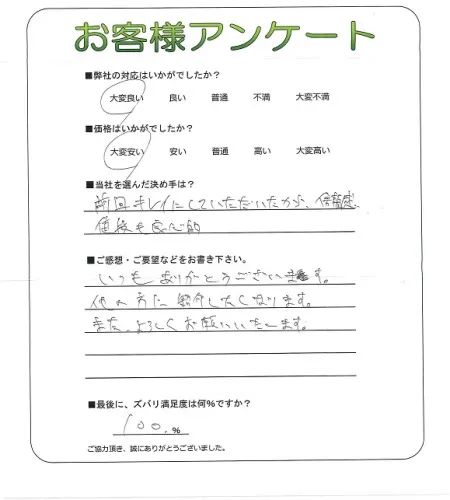 お客様アンケート
■弊社の対応はいかがでしたか？
大変良い 良い 普通 不満 大変不満
■価格はいかがでしたか？
大変安い 安い 普通 高い 大変高い
■当社を選んだ決め手は？
前回キレイにしていただいたから、信頼感、
価格も良心的
■ご感想・ご要望などをお書き下さい。
いつもありがとうございます。
他の方に紹介したくなります。
また、よろしくお願いいたします。
■最後に、ズバリ満足度は何%ですか？
100.%
ご協力頂き、誠にありがとうございました。